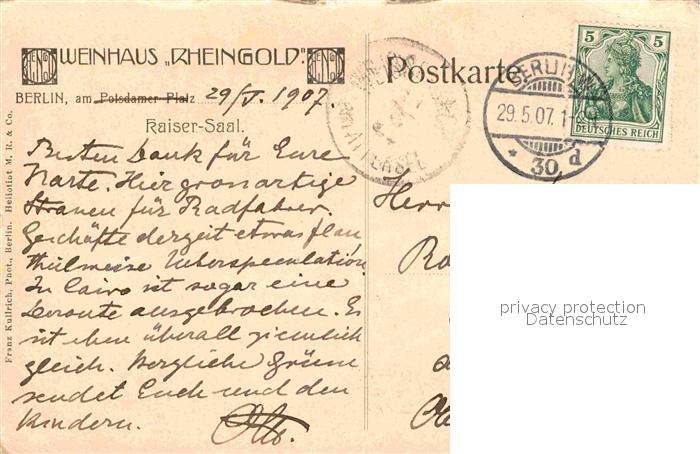 WEINHAUS „RHEINGOLD".
BERLIN, am Potsdamer Platz 29/5. 1907.
Kaiser-Saal.
Besten Dank für Eure
Karte. Hier grossartige
Strassen für Radfahrer.
Geschäfte derzeit etwas flau,
theilweise Ueberspeculation.
In Cairo ist sogar eine
Deroute ausgebrochen. Es
ist eben überall ziemlich
gleich. Herzliche Grüsse
sendet Euch und den
Kindern. Otto.
Franz Kullrich, Phot., Berlin. Heliotint M. R. & Co.
Postkarte.
BERLIN W.
29.5.07. 1-
* 30 d
5 5
DEUTSCHES REICH
Herr
privacy protection
Datenschutz